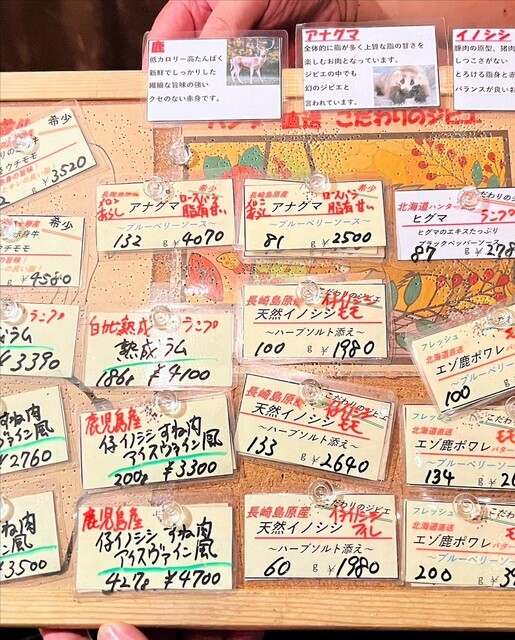 鹿
低カロリー高たんぱく
新鮮でしっかりした
繊細な旨味の強い
クセのない赤身です。
アナグマ
全体的に脂が多く上質な脂の甘さを
楽しむお肉となっています。
ジビエの中でも
幻のジビエと
言われています。
イノシシ
豚肉の原型、猪肉
しつこさがない
とろける脂身と赤
バランスが良いお
直送 こだわりのジビエ
希少
ウチモモ
¥3520
希少
身牛
ウチモモ
¥4580
ランプ
ラム
¥3390
すね肉
ヴァイン風
¥2760
すね肉
イン風
¥3500
長崎島原産
希少
アナグマ
ロースバラ
脂有甘い
～ブルーベリーソース～
132 g ¥4070
長崎島原産
希少
アナグマ
ロースバラ
脂有甘い
～ブルーベリーソース～
81 g ¥2500
こだわりのジビエ
北海道ハンター
ランプ
ヒグマ
ヒグマのエキスたっぷり
ブラックペッパーソース
87 g ¥278
白カビ熟成
ランプ
熟成ラム
186g ¥4100
こだわりのジビエ
長崎島原産
天然イノシシ
モモ
～ハーブソルト添え～
100 g ¥1980
フレッシュ
北海道直送
エゾ鹿ポワレ
～ブルーベリーソース
100
鹿児島産
仔イノシシ すね肉
アイスヴァイン風
200g ¥3300
こだわりのジビエ
長崎島原
天然イノシシ
モモ
～ハーブソルト添え～
133 g ¥2640
フレッシュ こだわり
北海道直送
エゾ鹿ポワレ バター
～ブルーベリーソー
134 g ¥26
鹿児島産
仔イノシシ すね肉
アイスヴァイン風
427g ¥4700
こだわりのジビエ
長崎島原産
天然イノシシ
ヒレ
～ハーブソルト添え～
60 g ¥1980
フレッシュ こだわり
北海道直送
エゾ鹿ポワレ バター
～ブルーベリーソース
200 g ¥39